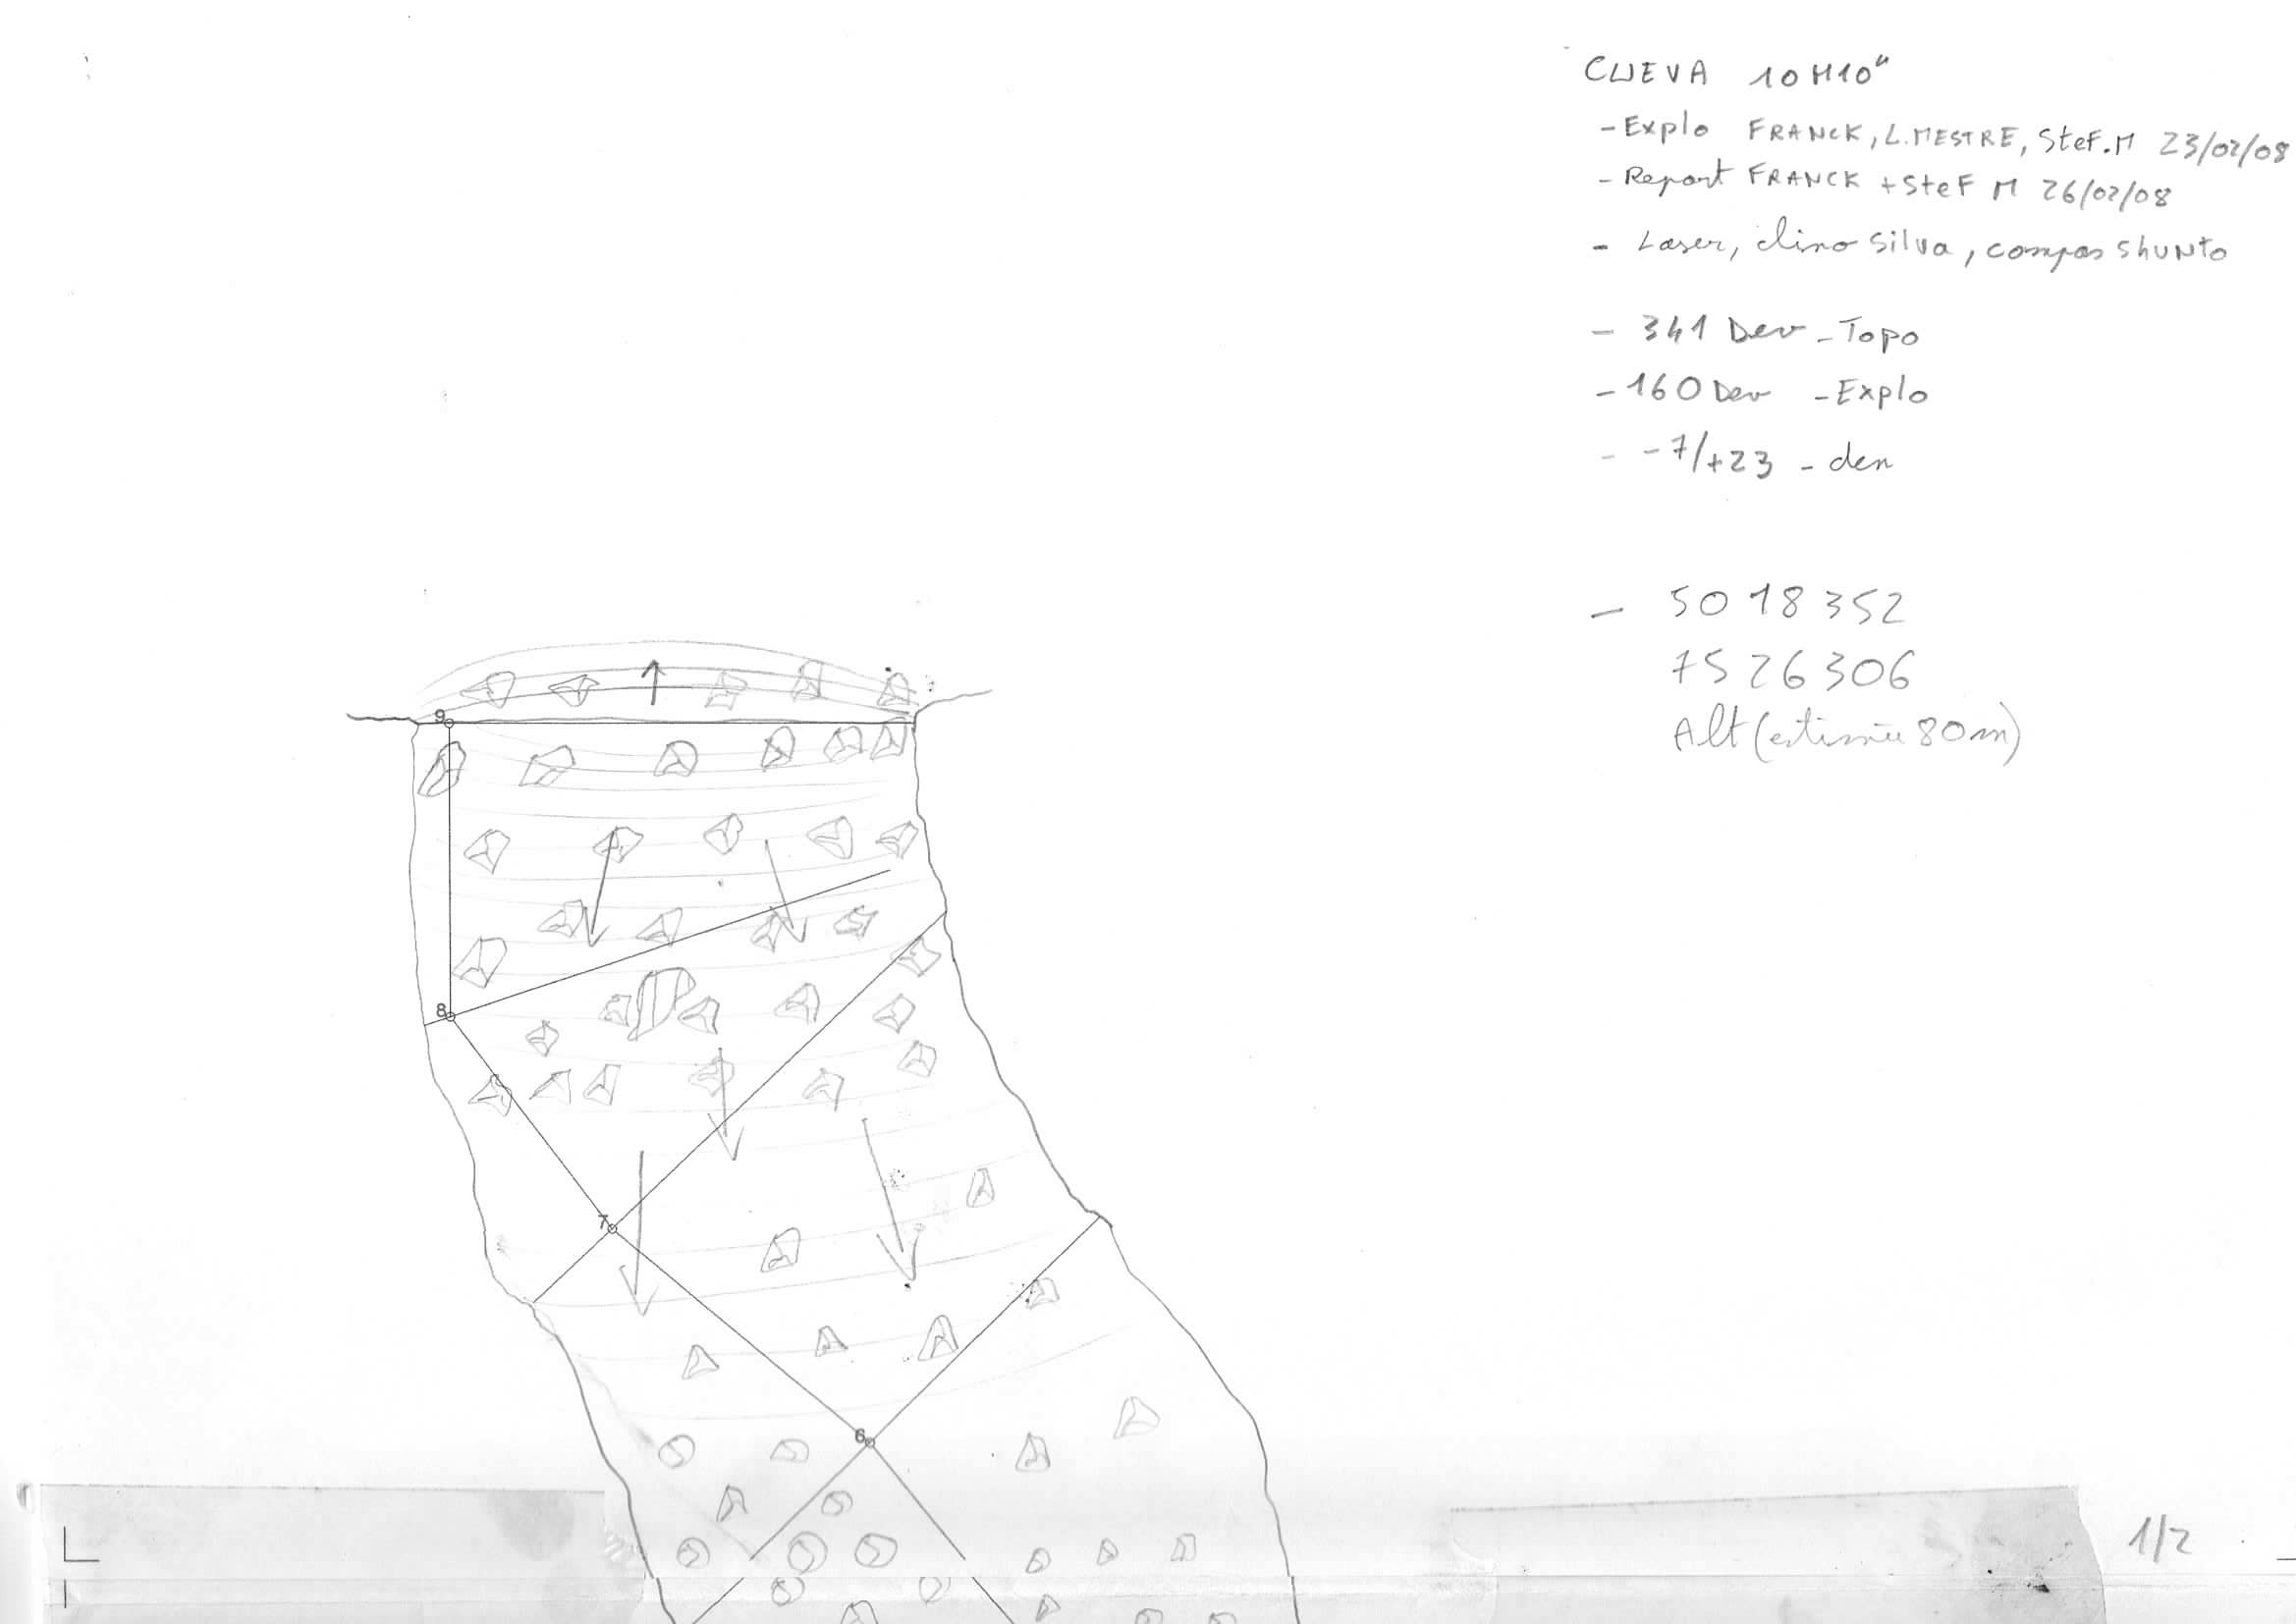 CUEVA 10H10"
- Explo FRANCK, L.MESTRE, SteF.M 23/02/08
- Report FRANCK + SteF M 26/02/08
- Laser, clino Silva, compas ShUNto
- 341 Dev - Topo
- 160 Dev - Explo
- -7/+23 - den
- 5018352
7526306
Alt (estimée 80m)
9
8
7
6
1/2